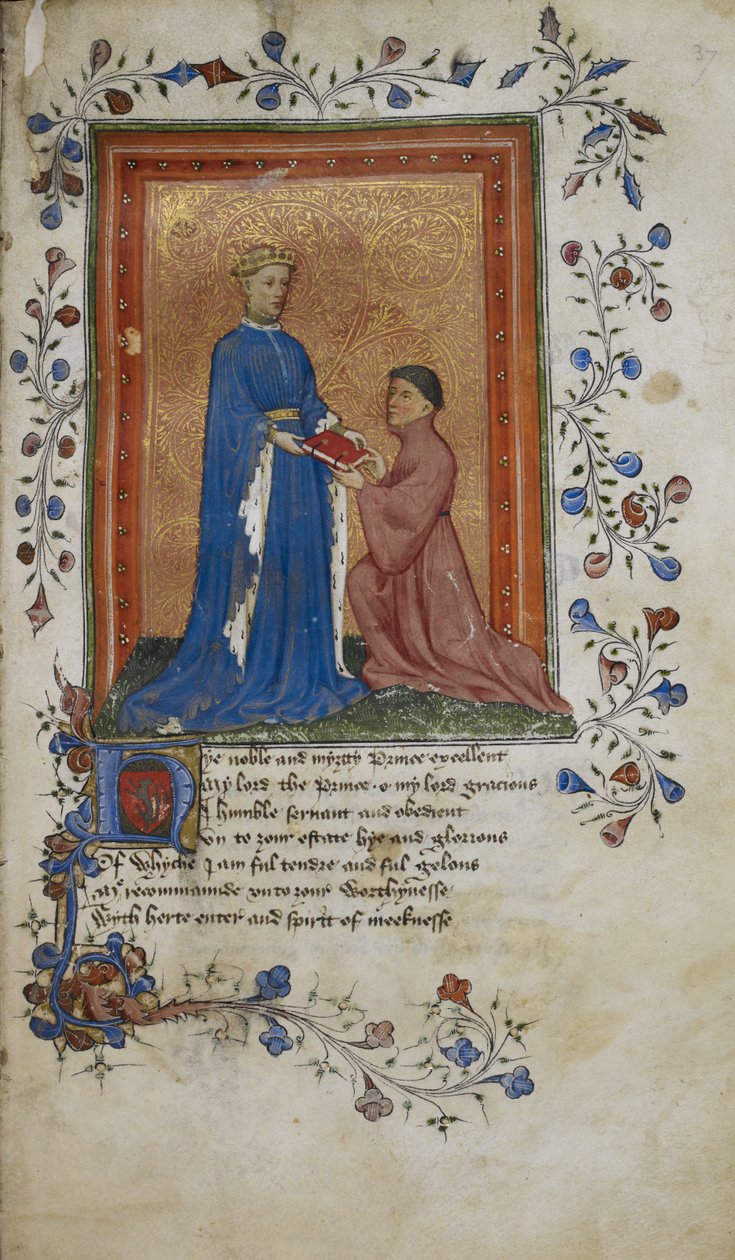 37
Hye noble and myȝty Prince excellent
My lord the Prince · o my lord gracious
I humble seruant and obedient
Vn to ȝour estate hye and glorious
Of Whyche I am ful tendre and ful gelous
Me recommaunde vnto ȝour Worthynesse
Wyth herte enter and spirit of meeknesse